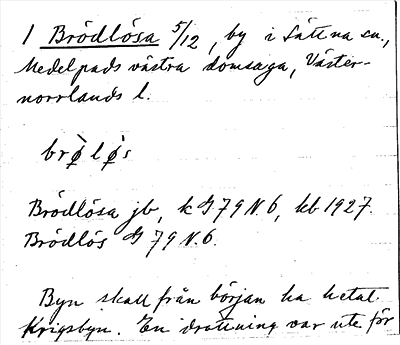 1 Brödlösa 5/12, by i Sättna sn.,
Medelpads västra domsaga, Väster-
norrlands l.
brø̀lø̀s
Brödlösa jb, k G79 N.6, kb 1927.
Brödlös G 79 N.6.
Byn skall från början ha hetat
Krigsbyn. En drottning var ute för